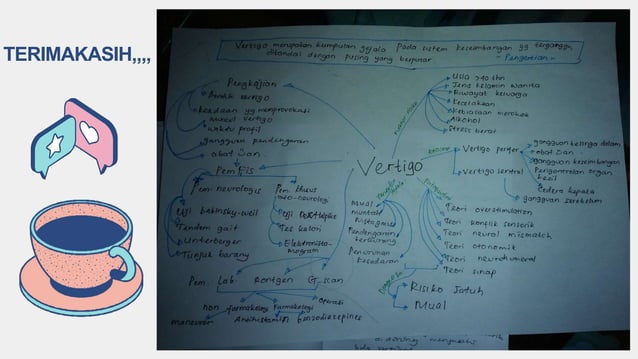 TERIMAKASIH,,,,
Vertigo merupakan kumpulan gejala pada sistem keseimbangan yg terganggu
ditandai dengan pusing yang berputar
- Pengertian -
Pengkajian
vertigo
keadaan yg memprovokasi
vertigo
waktu profil
gangguan pendengaran
obat
Pem Fis
Pem. neurologis
Pem. khusus
neurologi
Uji babinsky-weil
Tandem gait
Unterberger
Tunjuk barany
Tes kalori
Elektronista-
mogram
Pem. Lab
Rontgen
CT-scan
non farmakologi
Farmakologi
operasi
manuever
Antihistamin
benzodiazepines
Vertigo
Usia >40 thn
Jenis kelamin wanita
Riwayat keluarga
Kecelakaan
Kebiasaan merokok
Alkohol
Stress berat
Vertigo perifer
gangguan telinga dalam
gangguan keseimbangan
Vertigo sentral
Pengontrolan organ
kecil
Cedera kepala
gangguan serebelum
Mual
muntah
Nistagmus
Pendengaran
terganggu
Penurunan
Kesadaran
Teori overstimulasion
Teori konflik sensorik
Teori neural mismatch
Teori otonomik
Teori neurohumoral
Teori sinap
Risiko Jatuh
Mual